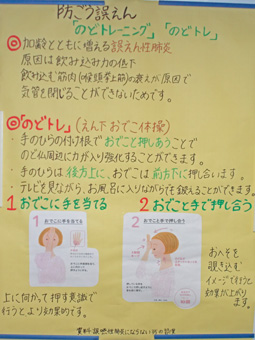 防ごう誤えん
「のどトレーニング」「のどトレ」
◎加齢とともに増える誤えん性肺炎
原因は飲み込み力の低下
飲み込む筋肉(喉頭挙上筋)の衰えが原因で
気管を閉じることができないためです。
◎「のどトレ」(えん下 おでこ体操)
・手のひらの付け根で おでこと押しあうことで
のど仏周辺に力が入り強化することができます。
・手のひらは 後方上に、おでこは 前方下に 押し合います。
・テレビを見ながら、お風呂に入りながらでも鍛えることができます。
1 おでこに手を当てる
2 おでこと手で押し合う
1 おでこに手を当てる
2 おでこと手で押し合う
おへそを
覗き込む
イメージで行うと
効果が上がり
ます。
上に向かって押す意識で
行うとより効果的です。